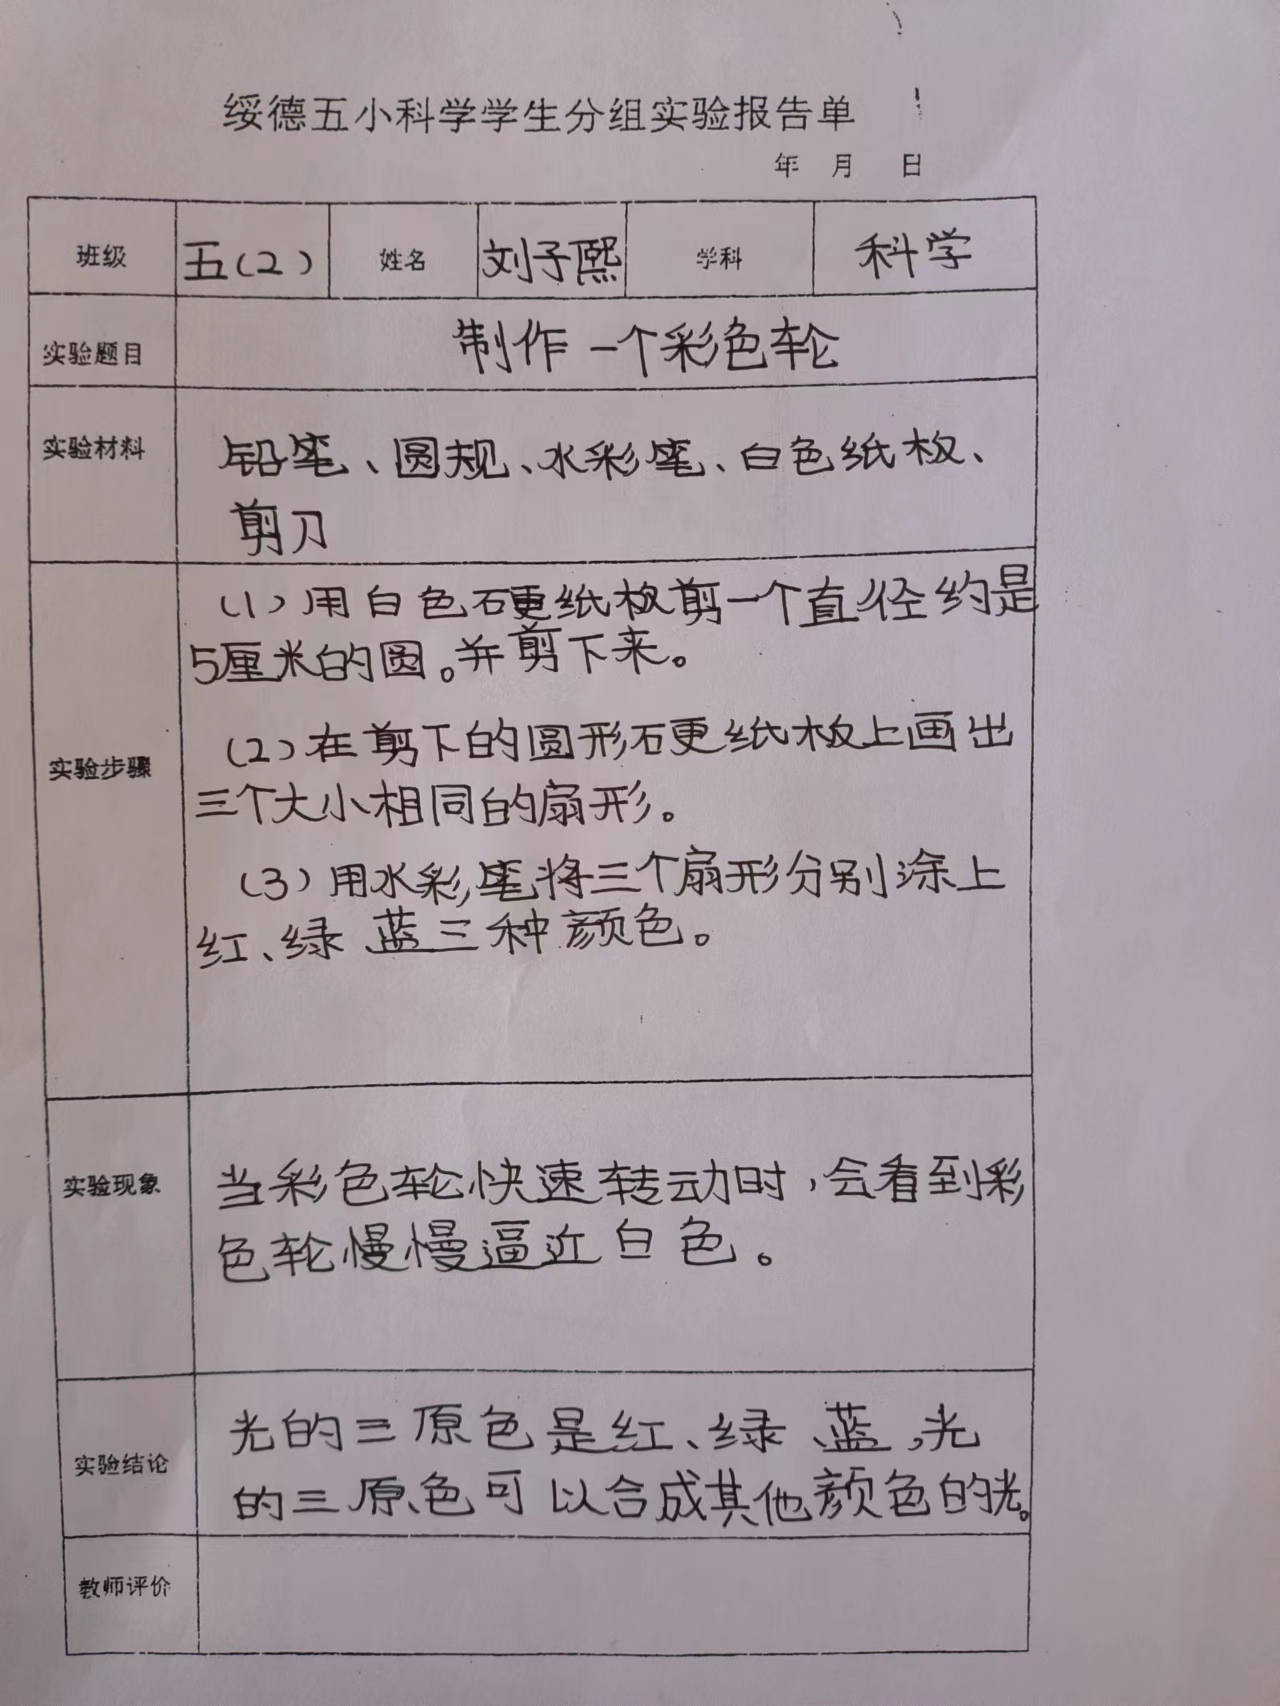 绥德五小科学学生分组实验报告单
年 月 日
班级 五(2) 姓名 刘子熙 学科 科学
实验题目 制作一个彩色轮
实验材料 铅笔、圆规、水彩笔、白色纸板、
剪刀
实验步骤
(1)用白色硬纸板剪一个直径约是
5厘米的圆。并剪下来。
(2)在剪下的圆形硬纸板上画出
三个大小相同的扇形。
(3)用水彩笔将三个扇形分别涂上
红、绿、蓝三种颜色。
实验现象 当彩色轮快速转动时,会看到彩
色轮慢慢逼近白色。
实验结论 光的三原色是红、绿、蓝,光
的三原色可以合成其他颜色的光。
教师评价